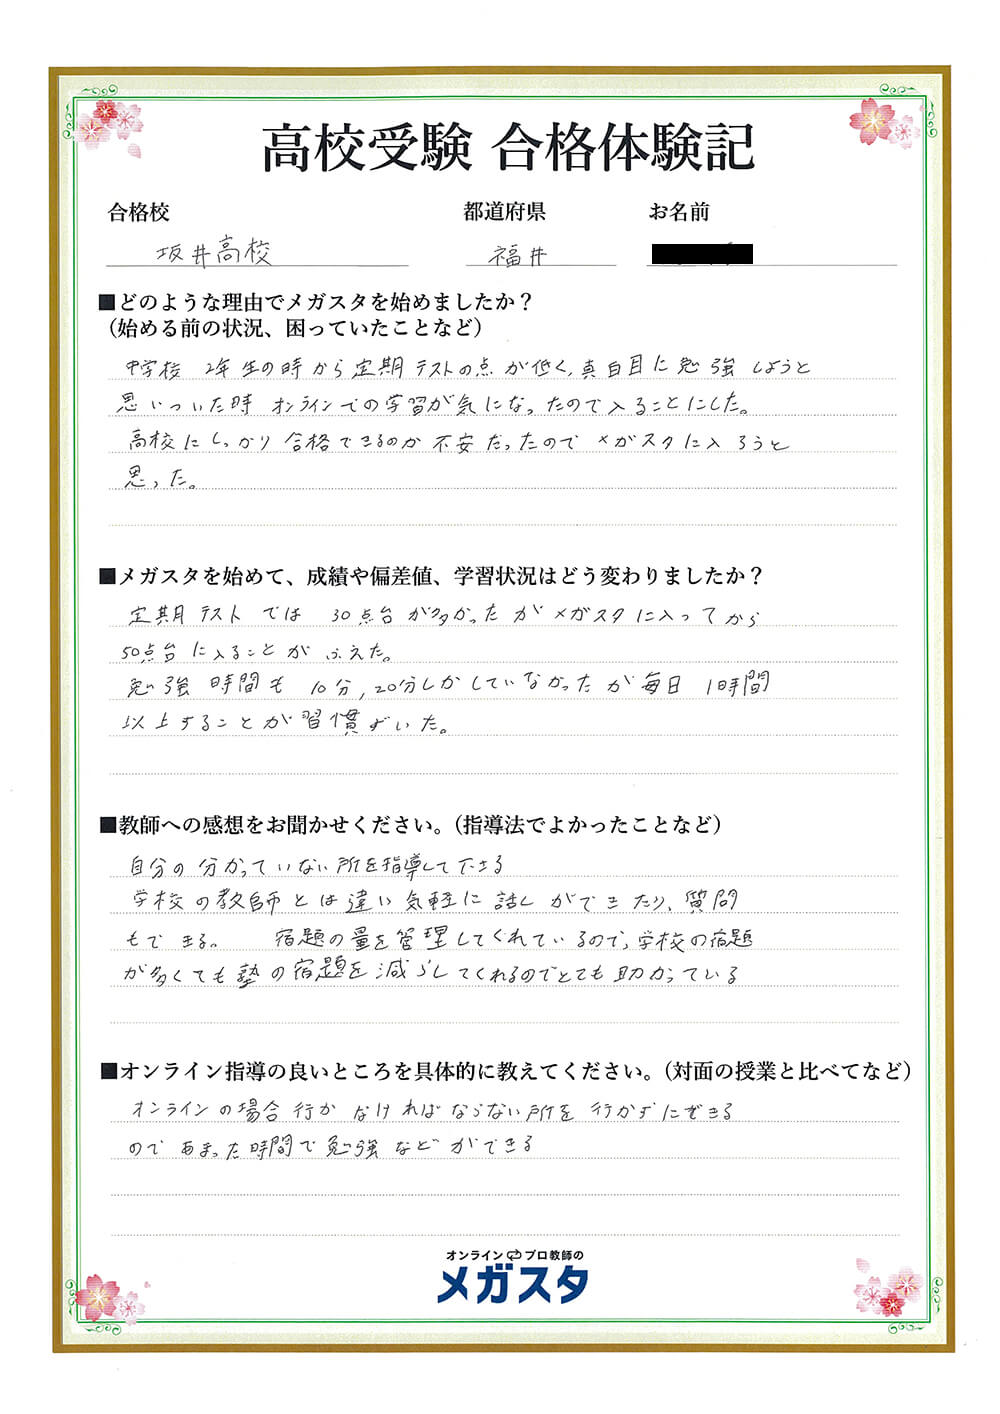 高校受験 合格体験記
合格校 都道府県 お名前
坂井高校 福井
■どのような理由でメガスタを始めましたか？
（始める前の状況、困っていたことなど）
中学校 2年生の時から定期テストの点が低く、真面目に勉強しようと
思いついた時 オンラインでの学習が気になったので入ることにした。
高校にしっかり合格できるのか不安だったので メガスタに入ろうと
思った。
■メガスタを始めて、成績や偏差値、学習状況はどう変わりましたか？
定期テストでは 30点台が多かったがメガスタに入ってから
50点台に入ることがふえた。
勉強時間も 10分,20分しかしていなかったが毎日 1時間
以上することが習慣ずいた。
■教師への感想をお聞かせください。（指導法でよかったことなど）
自分の分かっていない所を指導して下さる
学校の教師とは違い気軽に話しができたり、質問
もできる。 宿題の量を管理してくれているので、学校の宿題
が多くても塾の宿題を減らしてくれるのでとても助かっている
■オンライン指導の良いところを具体的に教えてください。（対面の授業と比べてなど）
オンラインの場合行かなければならない所を行かずにできる
のであまった時間で勉強などができる
オンラインプロ教師の
メガスタ